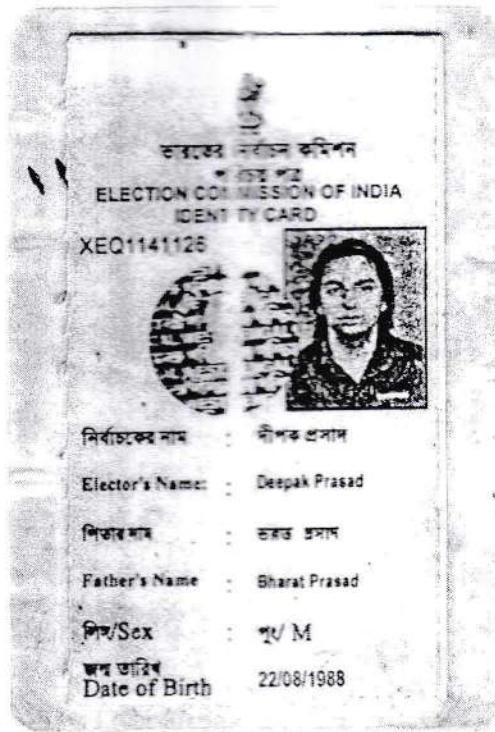 ভারতের নির্বাচন কমিশন
পরিচয় পত্র
ELECTION COMMISSION OF INDIA
IDENTITY CARD
XEQ1141126
নির্বাচকের নাম : দীপক প্রসাদ
Elector's Name: : Deepak Prasad
পিতার নাম : ভরত প্রসাদ
Father's Name : Bharat Prasad
লিঙ্গ/Sex : পুং/ M
জন্ম তারিখ
Date of Birth 22/08/1988